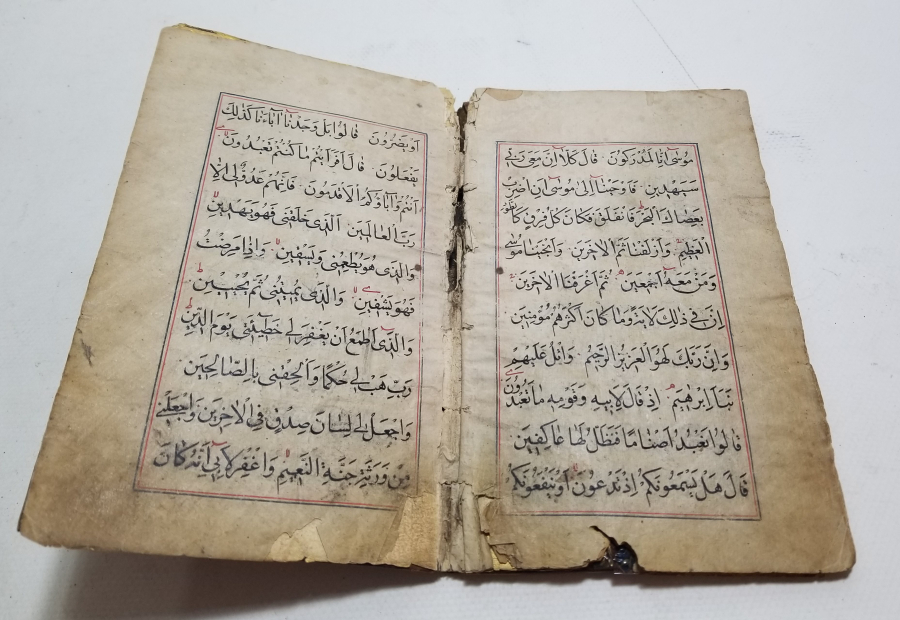 مُوسٰٓى اِنَّا لَمُدْرَكُونَ قَالَ كَلَّا اِنَّ مَعِىَ رَبّ۪ى
سَيَهْد۪ينِ فَاَوْحَيْنَٓا اِلٰى مُوسٰٓى اَنِ اضْرِبْ
بِعَصَاكَ الْبَحْرَ فَانْفَلَقَ فَكَانَ كُلُّ فِرْقٍ كَالطَّوْدِ
الْعَظ۪يمِ وَاَزْلَفْنَا ثَمَّ الْاٰخَر۪ينَ وَاَنْجَيْنَا مُوسٰى
وَمَنْ مَعَهُٓ اَجْمَع۪ينَ ثُمَّ اَغْرَقْنَا الْاٰخَر۪ينَ
اِنَّ ف۪ى ذٰلِكَ لَاٰيَةً وَمَا كَانَ اَكْثَرُهُمْ مُؤْمِن۪ينَ
وَاِنَّ رَبَّكَ لَهُوَ الْعَز۪يزُ الرَّح۪يمُ وَاتْلُ عَلَيْهِمْ
نَبَاَ اِبْرٰه۪يمَ اِذْ قَالَ لِاَب۪يهِ وَقَوْمِه۪ مَا تَعْبُدُونَ
قَالُوا نَعْبُدُ اَصْنَامًا فَنَظَلُّ لَهَا عَاكِف۪ينَ
قَالَ هَلْ يَسْمَعُونَكُمْ اِذْ تَدْعُونَ اَوْ يَنْفَعُونَكُمْ
اَوْ يَضُرُّونَ قَالُوا بَلْ وَجَدْنَٓا اٰبَٓاءَنَا كَذٰلِكَ
يَفْعَلُونَ قَالَ اَفَرَاَيْتُمْ مَا كُنْتُمْ تَعْبُدُونَ
اَنْتُمْ وَاٰبَٓاؤُكُمُ الْاَقْدَمُونَ فَاِنَّهُمْ عَدُوٌّ ل۪ٓى اِلَّا
رَبَّ الْعَالَم۪ينَ اَلَّذ۪ى خَلَقَن۪ى فَهُوَ يَهْد۪ينِ
وَالَّذ۪ى هُوَ يُطْعِمُن۪ى وَيَسْق۪ينِ وَاِذَا مَرِضْتُ
فَهُوَ يَشْف۪ينِ وَالَّذ۪ى يُم۪يتُن۪ى ثُمَّ يُحْي۪ينِ
وَالَّذ۪ٓى اَطْمَعُ اَنْ يَغْفِرَ ل۪ى خَط۪ٓيئَت۪ى يَوْمَ الدّ۪ينِ
رَبِّ هَبْ ل۪ى حُكْمًا وَاَلْحِقْن۪ى بِالصَّالِح۪ينَ
وَاجْعَلْ ل۪ى لِسَانَ صِدْقٍ فِى الْاٰخِر۪ينَ وَاجْعَلْن۪ى
مِنْ وَرَثَةِ جَنَّةِ النَّع۪يمِ وَاغْفِرْ لِاَب۪ٓى اِنَّهُ كَانَ